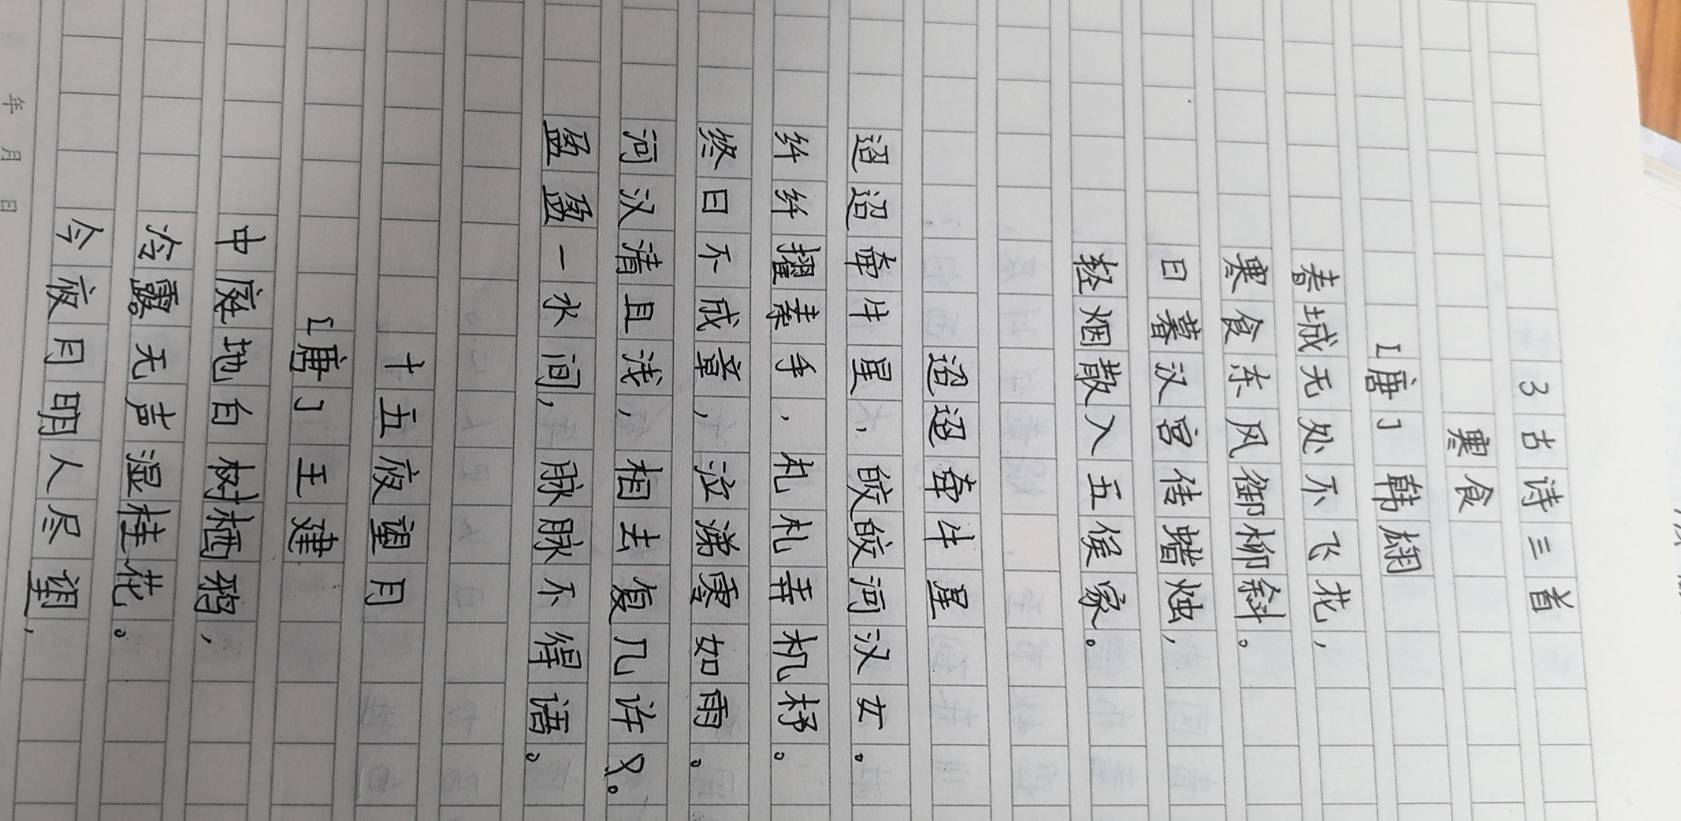 3古诗三首
寒食
[唐]韩翃
春城无处不飞花，
寒食东风御柳斜。
日暮汉宫传蜡烛，
轻烟散入五侯家。
迢迢牵牛星
迢迢牵牛星，皎皎河汉女。
纤纤擢素手，札札弄机杼。
终日不成章，泣涕零如雨。
河汉清且浅，相去复几许。
盈盈一水间，脉脉不得语。
十五夜望月
[唐]王建
中庭地白树栖鸦，
冷露无声湿桂花。
今夜月明人尽望，
年 月 日